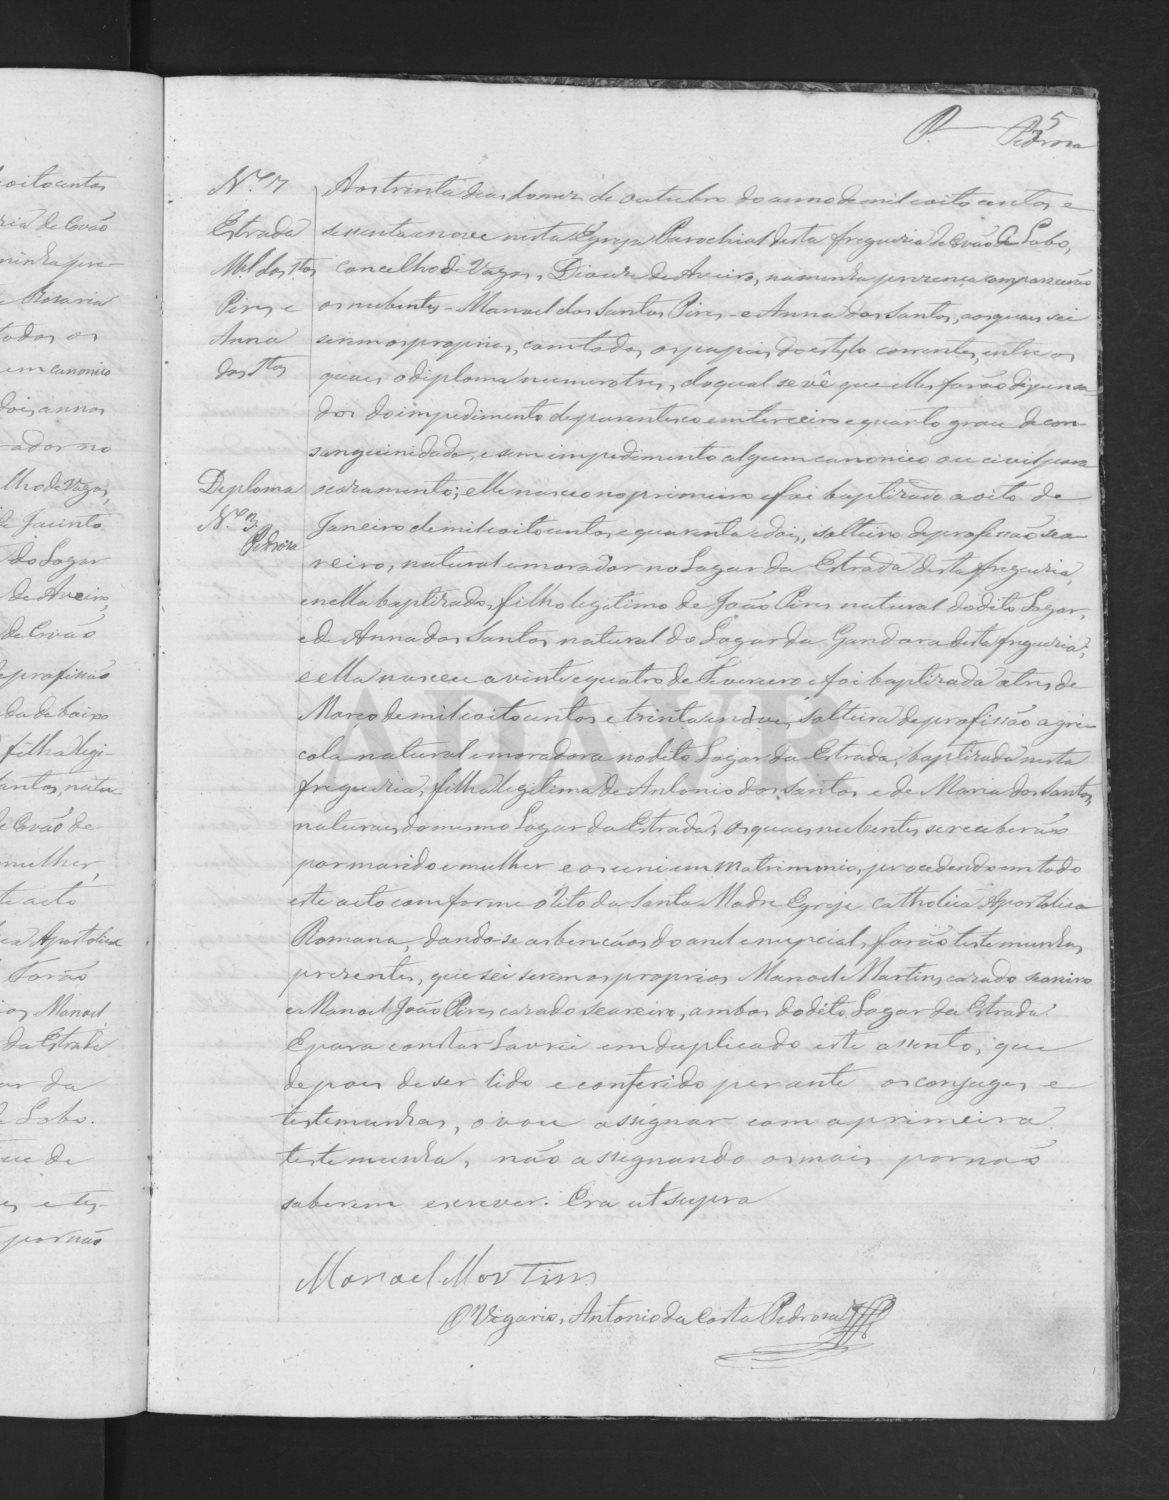 P. 5
Pedrosa
N.º 7
Estrada
M.el dos S.tos
Pires e
Anna
dos S.tos
Diploma
N.º 3
Pedrosa
Aos trinta dias do mez de outubro do anno de mil oito centos e
sessenta e nove nesta Egreja Parochial desta freguezia de Covão do Lobo,
concelho de Vagos, Diocese de Aveiro, na minha prezença comparecerão
os nubentes - Manoel dos Santos Pires - e Anna dos Santos, aos quaes sei
serem os proprios, com todos os papeis do estylo correntes, entre os
quaes o diploma numero tres, do qual se vê que elles forão dispensa-
dos do impedimento de parentesco em terceiro e quarto grau de con-
sanguinidade, e sem impedimento algum canonico ou civil para
o cazamento; elle nasceo no primeiro e foi baptizado a oito de
Janeiro de mil oito centos e quarenta e dois, solteiro de profissão sea-
reiro, natural e morador no Lugar da Estrada desta freguezia,
e nella baptizado, filho legitimo de João Pires natural do dito Lugar,
e de Anna dos Santos natural do Lugar da Gandara desta freguezia;
e ella nasceu a vinte e quatro de Fevereiro e foi baptizada a tres de
Março de mil oito centos e trinta e nove, solteira de profissão agri-
cola natural e moradora no dito Lugar da Estrada, baptizada nesta
freguezia, filha legitima de Antonio dos Santos e de Maria dos Santos,
naturaes do mesmo Lugar da Estrada; os quaes nubentes se receberão
por marido e mulher e os uni em Matrimonio, procedendo em todo
este acto comforme o Rito da Santa Madre Egreja Catholica Apostolica
Romana, dando-se as bençãos do anel e nupciaes, forão testemunhas
prezentes, que sei serem os proprios Manoel Martins, cazado seareiro
e Manoel João Pires, cazado seareiro, ambos do dito Lugar da Estrada.
E para constar Lavrei em duplicado este assento, que
depois de ser lido e conferido perante os conjuges e
testemunhas, o vou assignar com a primeira
testemunha, não assignando os mais por não
saberem escrever. Era ut supra
Manoel Martins
O Vigario, Antonio da Costa Pedrosa